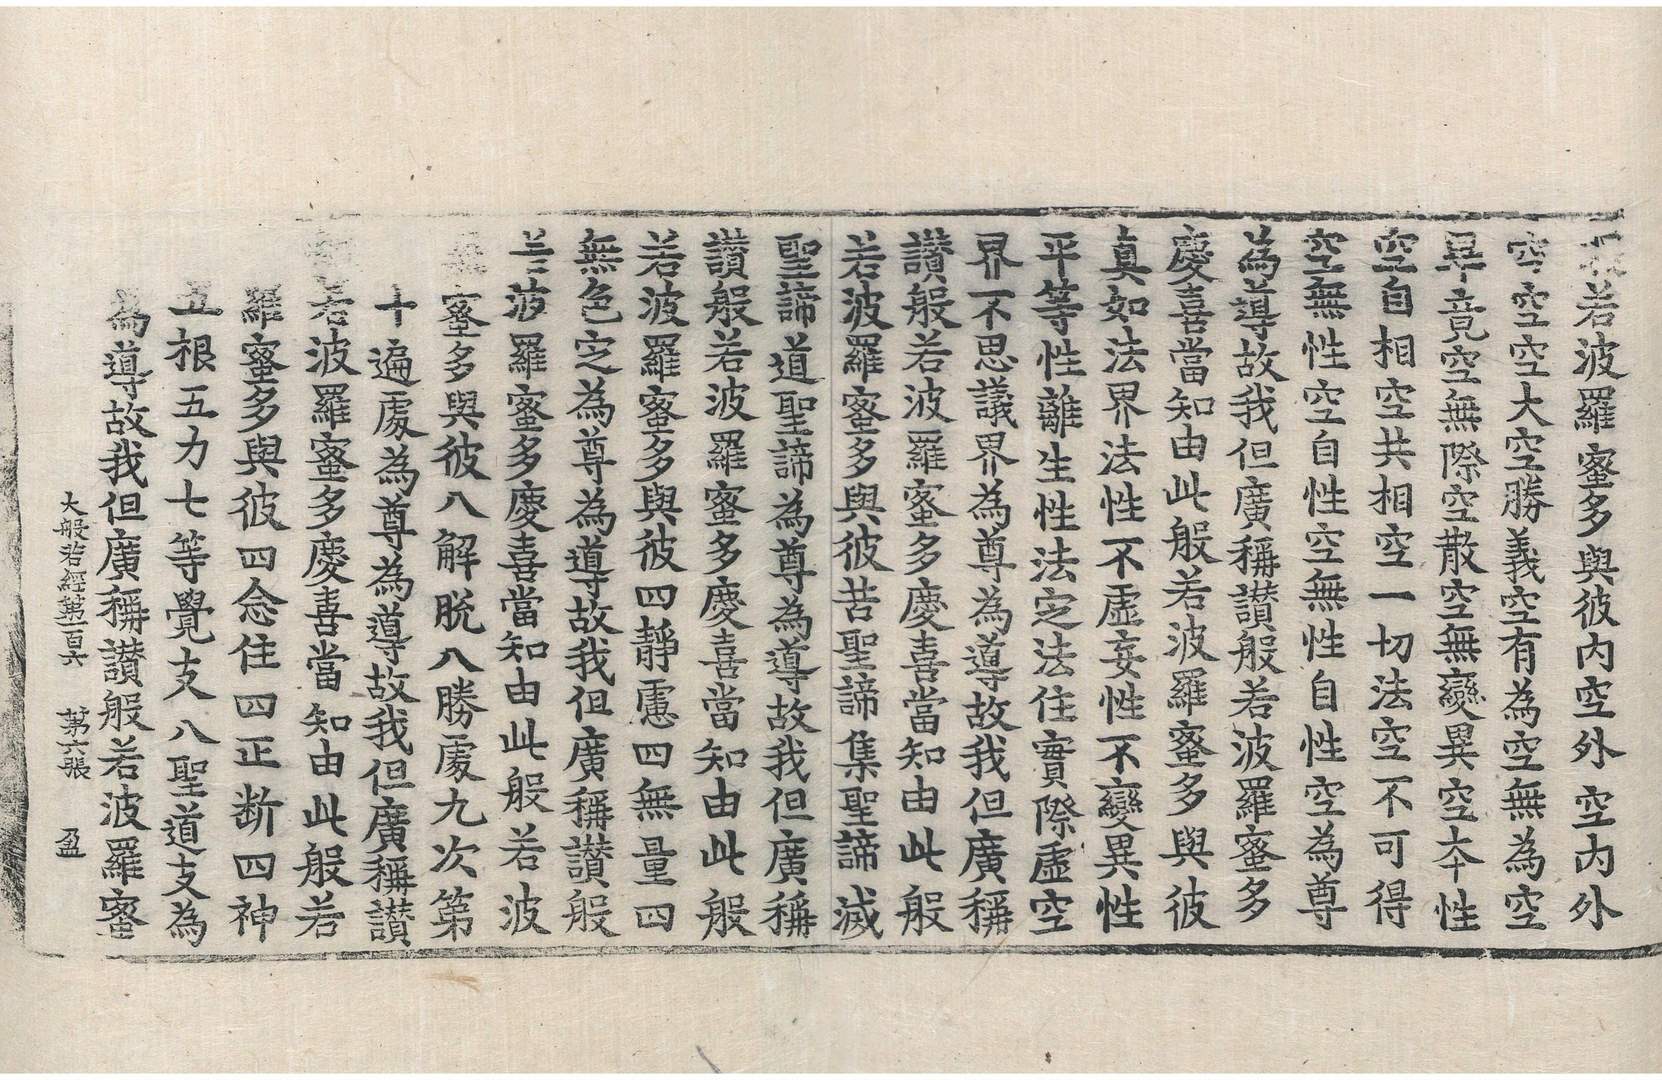 若波羅蜜多與彼內空外空內外
空空空大空勝義空有為空無為空
畢竟空無際空散空無變異空本性
空自相空共相空一切法空不可得
空無性空自性空無性自性空為尊
為導故我但廣稱讃般若波羅蜜多
慶喜當知由此般若波羅蜜多與彼
真如法界法性不虛妄性不變異性
平等性離生性法定法住實際虛空
界不思議界為尊為導故我但廣稱
讃般若波羅蜜多慶喜當知由此般
若波羅蜜多與彼苦聖諦集聖諦滅
聖諦道聖諦為尊為導故我但廣稱
讃般若波羅蜜多慶喜當知由此般
若波羅蜜多與彼四靜慮四無量四
無色定為尊為導故我但廣稱讃般
若波羅蜜多慶喜當知由此般若波
蜜多與彼八解脫八勝處九次第
十遍處為尊為導故我但廣稱讃
若波羅蜜多慶喜當知由此般若
羅蜜多與彼四念住四正断四神
五根五力七等覺支八聖道支為
為導故我但廣稱讃般若波羅蜜
大般若經第一百六 第六張 盈